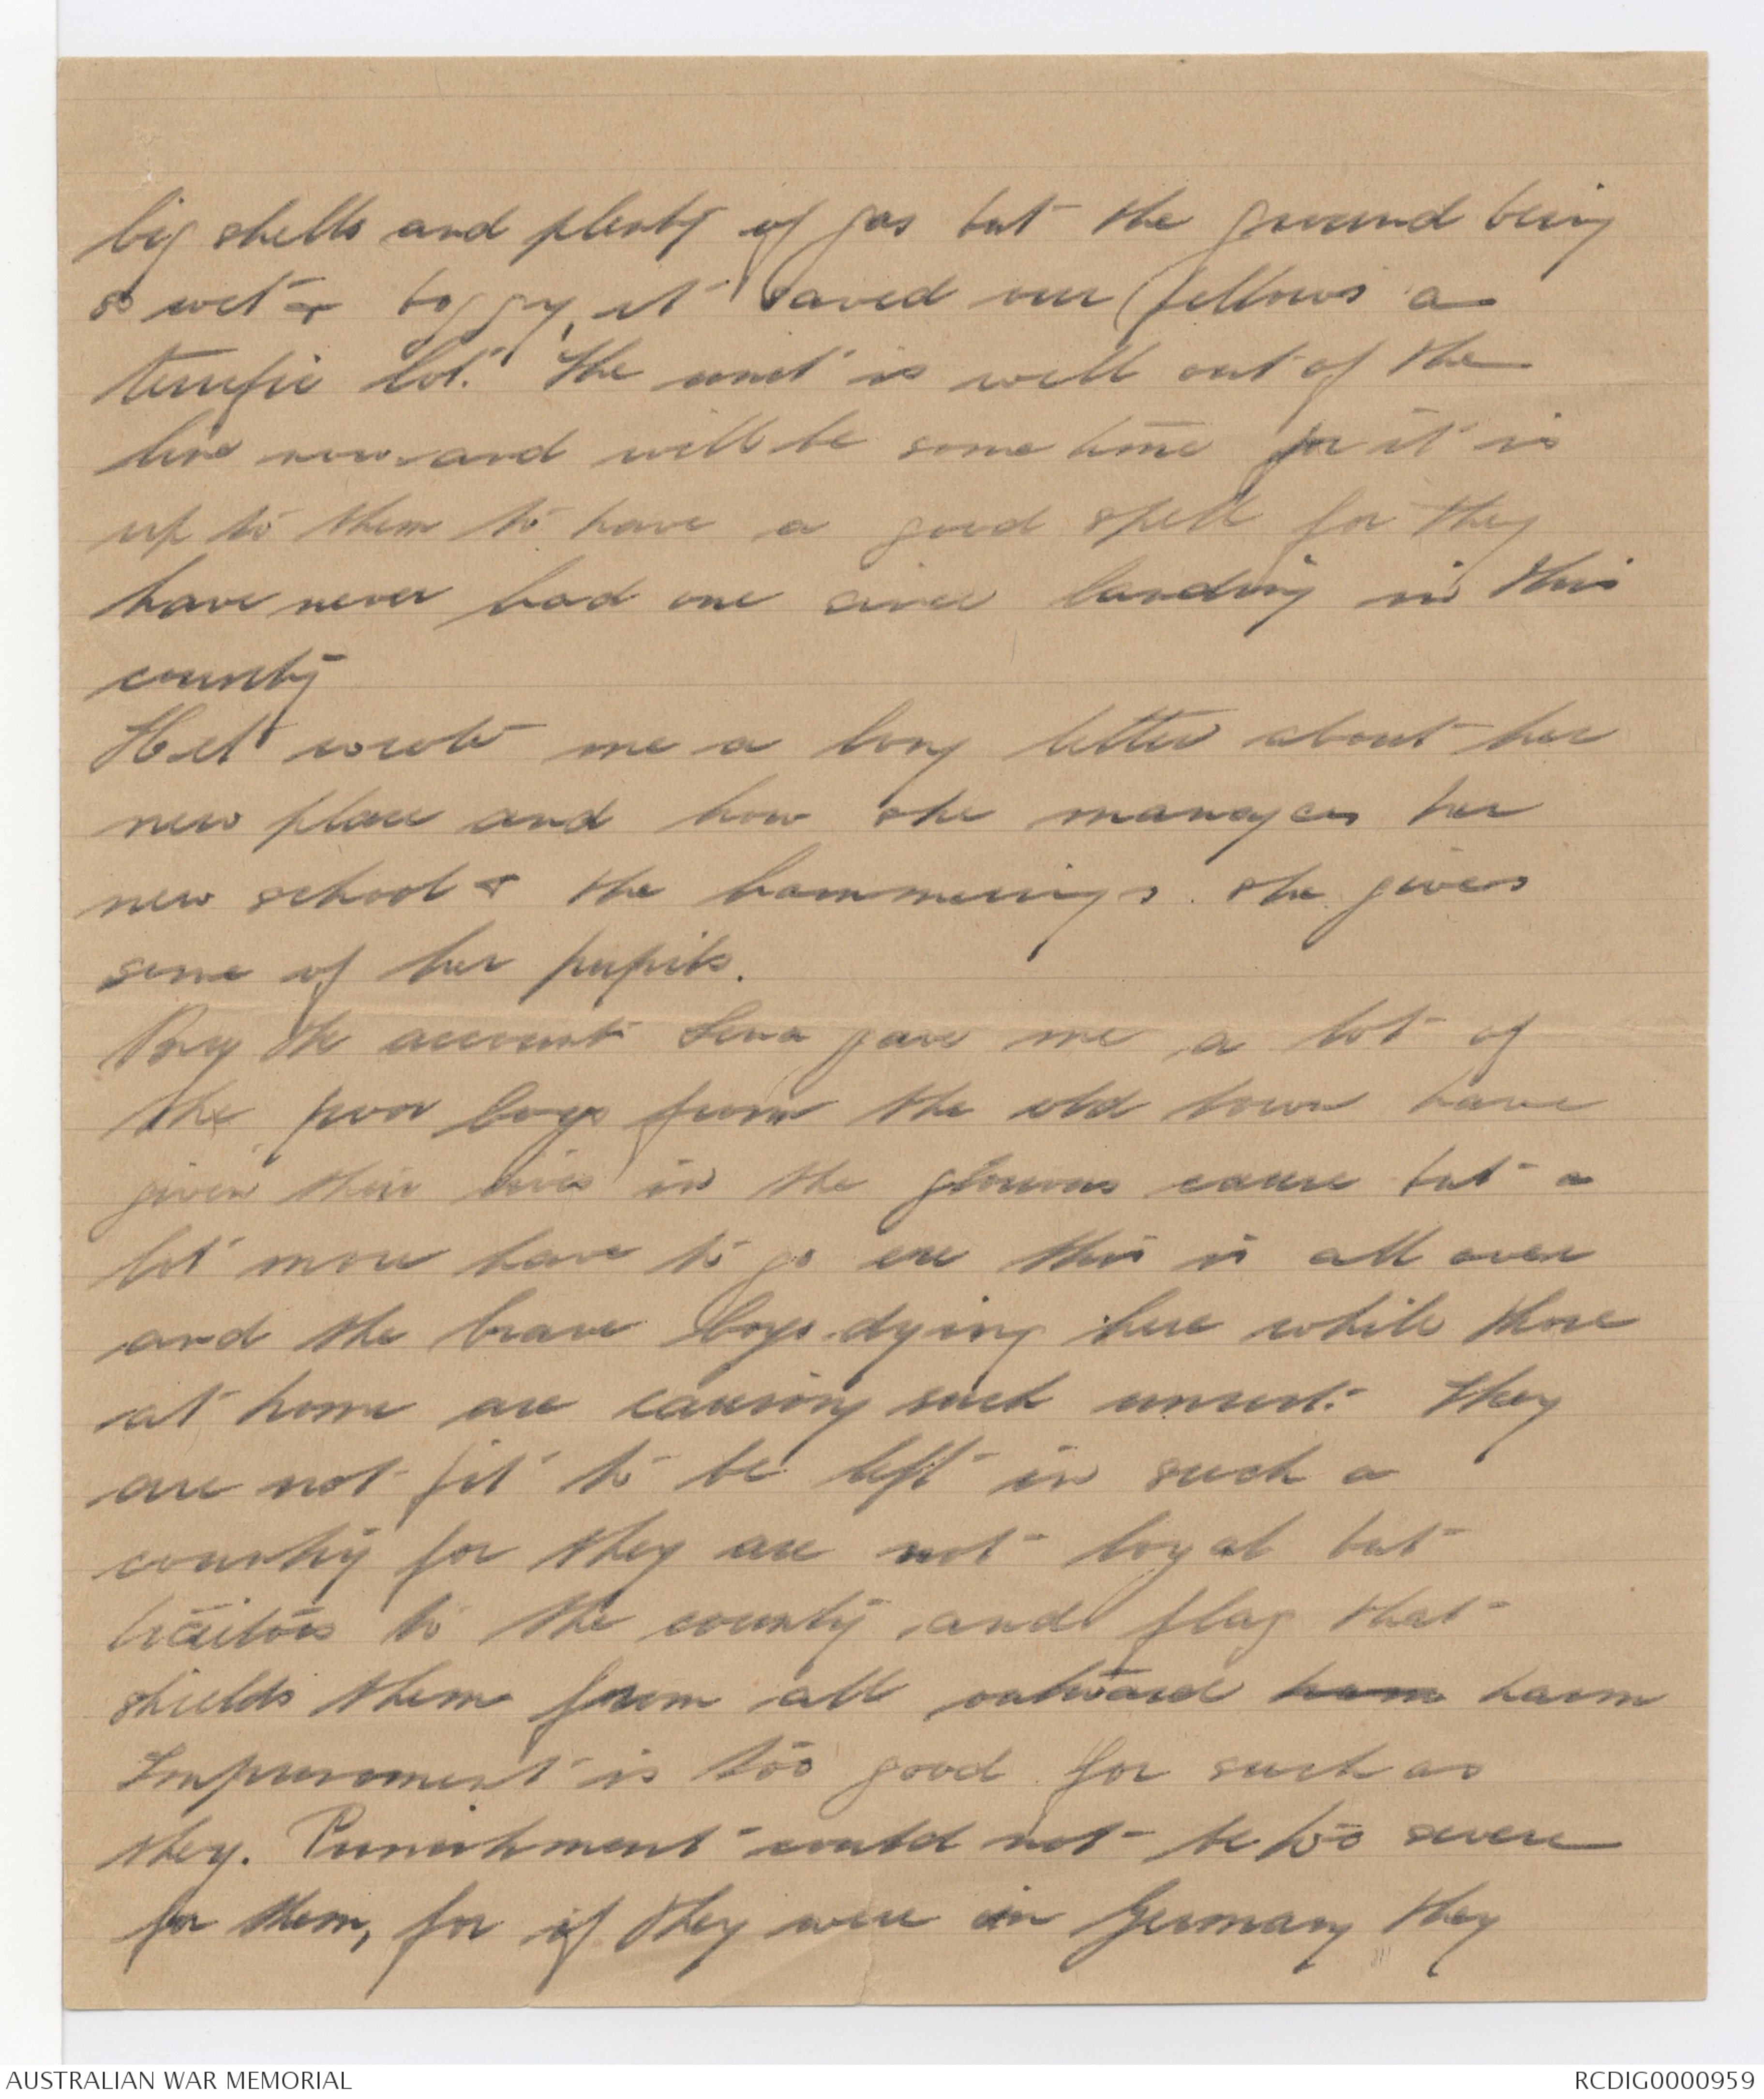 big shells and plenty of gas but the ground being
so wet & boggy, it saved our fellows a
terrific lot. The unit is well out of the
line now and will be some time for it is
up to them to have a good spell for they
have never had one since landing in this
county
Het wrote me a long letter about her
new place and how she manages her
new school & the hammerings she gives
some of her pupils.
By the account Lena gave me a lot of
the poor boys from the old town have
given their lives in the glorious cause but a
lot more have to go ere this is all over
and the brave boys dying here while those
at home are causing such unrest. They
are not fit to be left in such a
country for they are not loyal but
traitors to the county and flag that
shields them from all outward ham harm
Imprisonment is too good for such as
they. Punishment could not be too severe
for them, for if they were in Germany they
AUSTRALIAN WAR MEMORIAL
RCDIG0000959